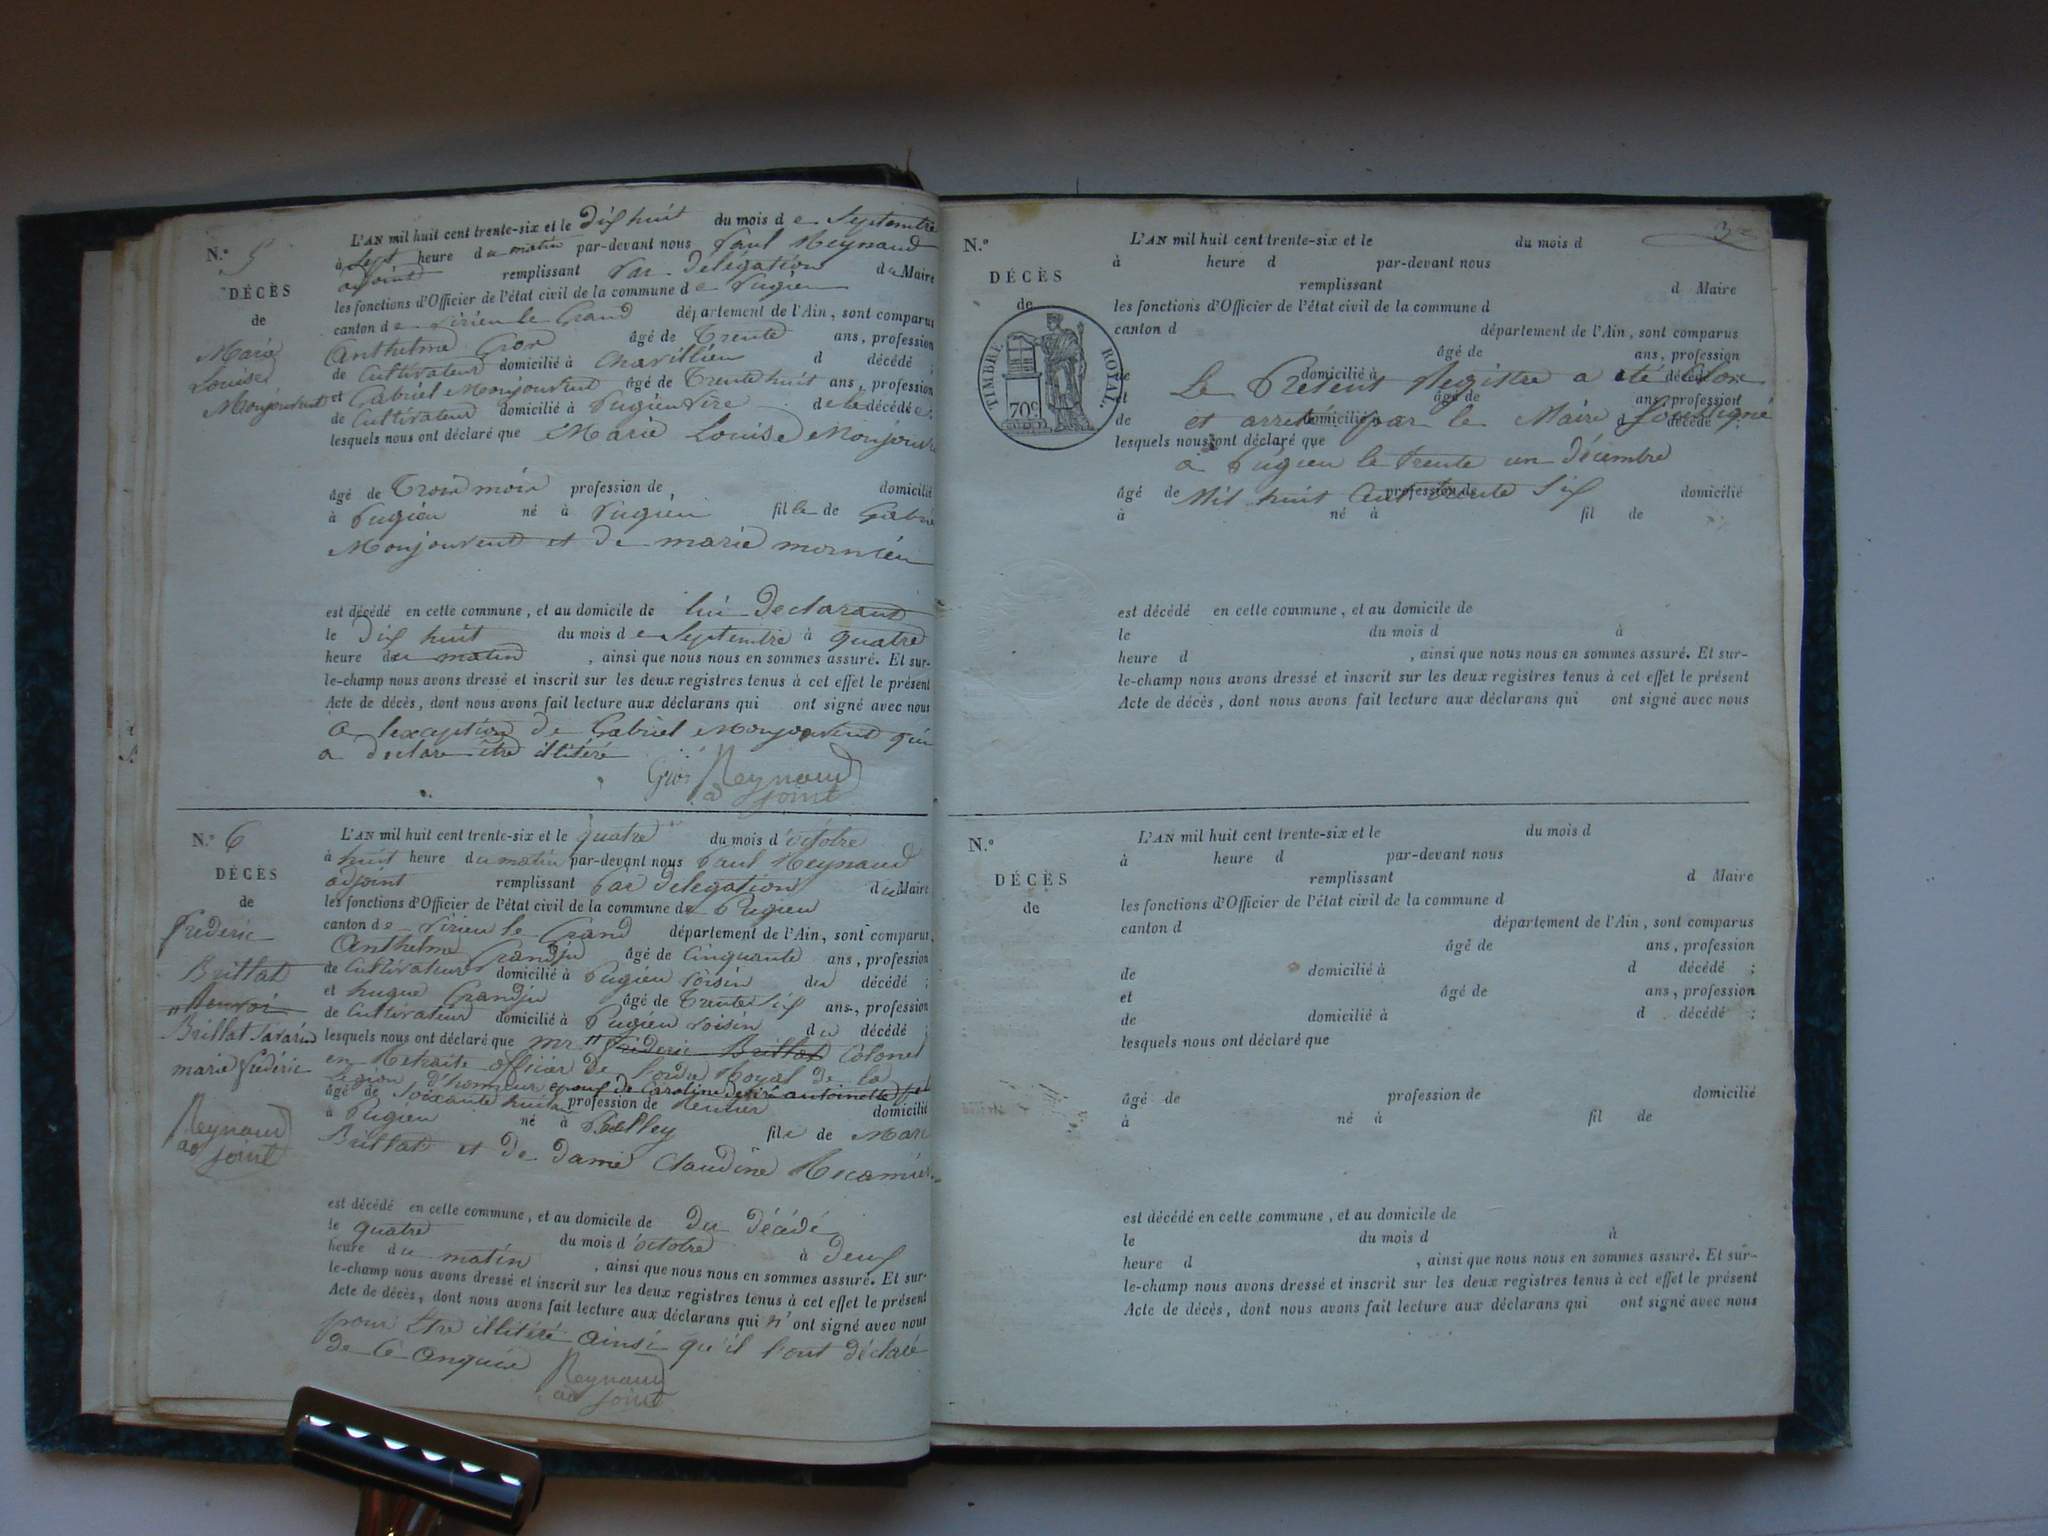 N.° 5
DÉCÈS
de
Marie
Louise
Monjouvent
L'AN mil huit cent trente-six et le dix huit du mois de Septembre
à Sept heure du matin par-devant nous Paul Reynaud
adjoint remplissant Par délégation du Maire
les fonctions d'Officier de l'état civil de la commune de Pugieu
canton de Virieu le Grand département de l'Ain, sont comparus
Anthelme Gros âgé de Trente ans, profession
de Cultivateur domicilié à Chavillieu d décédé ;
et Gabriel Monjouvent âgé de Trente huit ans, profession
de Cultivateur domicilié à Pugieu Père de la décédée ;
lesquels nous ont déclaré que Marie Louise Monjouve
âgé de Trois mois profession de domicilié
à Pugieu né à Pugieu fille de Gabrie
Monjouvent et de marie
est décédé en cette commune, et au domicile de lui Declarant
le Dix huit du mois de Septembre à quatre
heure du matin , ainsi que nous nous en sommes assuré. Et sur-
le-champ nous avons dressé et inscrit sur les deux registres tenus à cet effet le présent
Acte de décès, dont nous avons fait lecture aux déclarans qui ont signé avec nous
a lexception de Gabriel Monjouvent qui
a déclare être illitéré
Gros Reynaud
adjoint
N.° 6
DÉCÈS
de
frédéric
Brillat
Brillat Savarin
marie frédéric
Reynaud
adjoint
L'AN mil huit cent trente-six et le quatre du mois d'octobre
à huit heure du matin par-devant nous Paul Reynaud
adjoint remplissant Par délégation du Maire
les fonctions d'Officier de l'état civil de la commune de Pugieu
canton de Virieu le Grand département de l'Ain, sont comparus,
Anthelme Grandju âgé de Cinquante ans, profession
de Cultivateur domicilié à Pugieu Voisin du décédé ;
et hugue Grandju âgé de Trente six ans, profession
de Cultivateur domicilié à Pugieu voisin du décédé ;
lesquels nous ont déclaré que mr frédéric Brillat Colonel
en Retraite officier de l'ordre Royal de la
Légion d'honneur epoux de Caroline antoinette
âgé de Soixante huit an profession de Rentier domicilié
à Pugieu né à Belley fils de Marc
Brillat et de dame Claudine Recamier
est décédé en cette commune, et au domicile de du Décédé
le quatre du mois d'octobre à deux
heure du matin , ainsi que nous nous en sommes assuré. Et sur-
le-champ nous avons dressé et inscrit sur les deux registres tenus à cet effet le présent
Acte de décès, dont nous avons fait lecture aux déclarans qui n'ont signé avec nous
pour être illitéré ainsi qu'il l'ont déclaré
de ce enquis Reynaud
adjoint
N.°
DÉCÈS
de
TIMBRE ROYAL.
70c
L'AN mil huit cent trente-six et le du mois d
à heure d par-devant nous
remplissant d Maire
les fonctions d'Officier de l'état civil de la commune d
canton d département de l'Ain, sont comparus
âgé de ans, profession
de domicilié à d décédé ;
Le Présent Registre a été Clos
et âgé de ans, profession
de domicilié à d décédé ;
et arrêté par le Maire soussigné
lesquels nous ont déclaré que
a Pugieu le trente un décembre
âgé de profession de domicilié
Mil huit Cent trente Six
à né à fil de
est décédé en cette commune, et au domicile de
le du mois d à
heure d , ainsi que nous nous en sommes assuré. Et sur-
le-champ nous avons dressé et inscrit sur les deux registres tenus à cet effet le présent
Acte de décès, dont nous avons fait lecture aux déclarans qui ont signé avec nous
N.°
DÉCÈS
de
L'AN mil huit cent trente-six et le du mois d
à heure d par-devant nous
remplissant d Maire
les fonctions d'Officier de l'état civil de la commune d
canton d département de l'Ain, sont comparus
âgé de ans, profession
de domicilié à d décédé ;
et âgé de ans, profession
de domicilié à d décédé ;
lesquels nous ont déclaré que
âgé de profession de domicilié
à né à fil de
est décédé en cette commune, et au domicile de
le du mois d à
heure d , ainsi que nous nous en sommes assuré. Et sur-
le-champ nous avons dressé et inscrit sur les deux registres tenus à cet effet le présent
Acte de décès, dont nous avons fait lecture aux déclarans qui ont signé avec nous